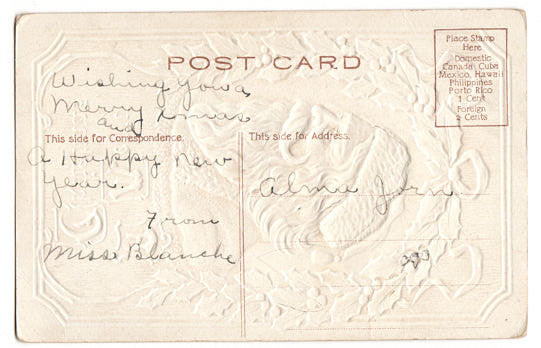 POST CARD
Place Stamp
Here
Domestic
Canada, Cuba
Mexico, Hawaii
Philippines
Porto Rico
1 Cent
Foreign
2 Cents
Wishing You a
Merry Xmas
and
This side for Correspondence.
a Happy New
Year.
From
Miss Blanche
This side for Address.
Alma Jorn